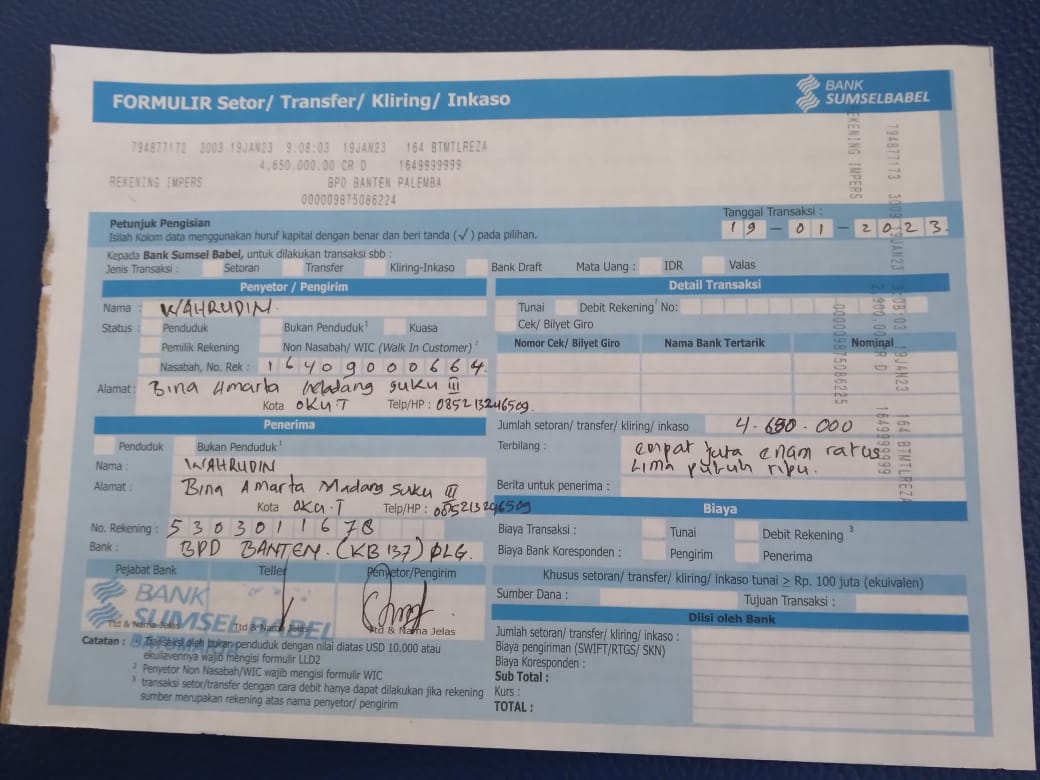 FORMULIR Setor/ Transfer/ Kliring/ Inkaso
BANK
SUMSELBABEL
794877172 3003 19JAN23 9:08:03 19JAN23 164 BTMTLREZA
4,650,000.00 CR D 1649999999
REKENING IMPERS BPD BANTEN PALEMBA
000009875086224
794877173 3003 19JAN23 9:08:03 19JAN23 164 BTMTLREZA
2,900.00 CR D 1649999999
REKENING IMPERS
000009875086225
Petunjuk Pengisian
Isilah Kolom data menggunakan huruf kapital dengan benar dan beri tanda (√) pada pilihan.
Tanggal Transaksi :
19 - 01 - 2023
Kepada Bank Sumsel Babel, untuk dilakukan transaksi sbb :
Jenis Transaksi : Setoran Transfer Kliring-Inkaso Bank Draft Mata Uang : IDR Valas
Penyetor / Pengirim
Nama : WAHRUDIN.
Status : Penduduk Bukan Penduduk¹ Kuasa
Pemilik Rekening Non Nasabah/ WIC (Walk In Customer) ²
Nasabah, No. Rek : 1640900066 4.
Alamat : Bina Amarta Meladang suku III
Kota OKUT Telp/HP : 085213246509.
Penerima
Penduduk Bukan Penduduk ¹
Nama : WAHRUDIN
Alamat : Bina Amarta Madang suku III
Kota OKU.T Telp/HP : 085213246509
No. Rekening : 5303011678
Bank : BPD BANTEN. (KB 137) PLG.
Pejabat Bank Teller Penyetor/Pengirim
BANK
SUMSEL BABEL
Ttd & Nama Jelas Ttd & Nama Jelas Ttd & Nama Jelas
Catatan : ¹ Transaksi oleh bukan penduduk dengan nilai diatas USD 10.000 atau
ekuilavennya wajib mengisi formulir LLD2
² Penyetor Non Nasabah/WIC wajib mengisi formulir WIC
³ transaksi setor/transfer dengan cara debit hanya dapat dilakukan jika rekening
sumber merupakan rekening atas nama penyetor/ pengirim
Detail Transaksi
Tunai Debit Rekening³ No:
Cek/ Bilyet Giro
Nomor Cek/ Bilyet Giro Nama Bank Tertarik Nominal
Jumlah setoran/ transfer/ kliring/ inkaso 4.650.000
Terbilang : empat juta enam ratus
Lima puluh ribu.
Berita untuk penerima :
Biaya
Biaya Transaksi : Tunai Debit Rekening ³
Biaya Bank Koresponden : Pengirim Penerima
Khusus setoran/ transfer/ kliring/ inkaso tunai ≥ Rp. 100 juta (ekuivalen)
Sumber Dana : Tujuan Transaksi :
Diisi oleh Bank
Jumlah setoran/ transfer/ kliring/ inkaso :
Biaya pengiriman (SWIFT/RTGS/ SKN)
Biaya Koresponden :
Sub Total :
Kurs :
TOTAL :